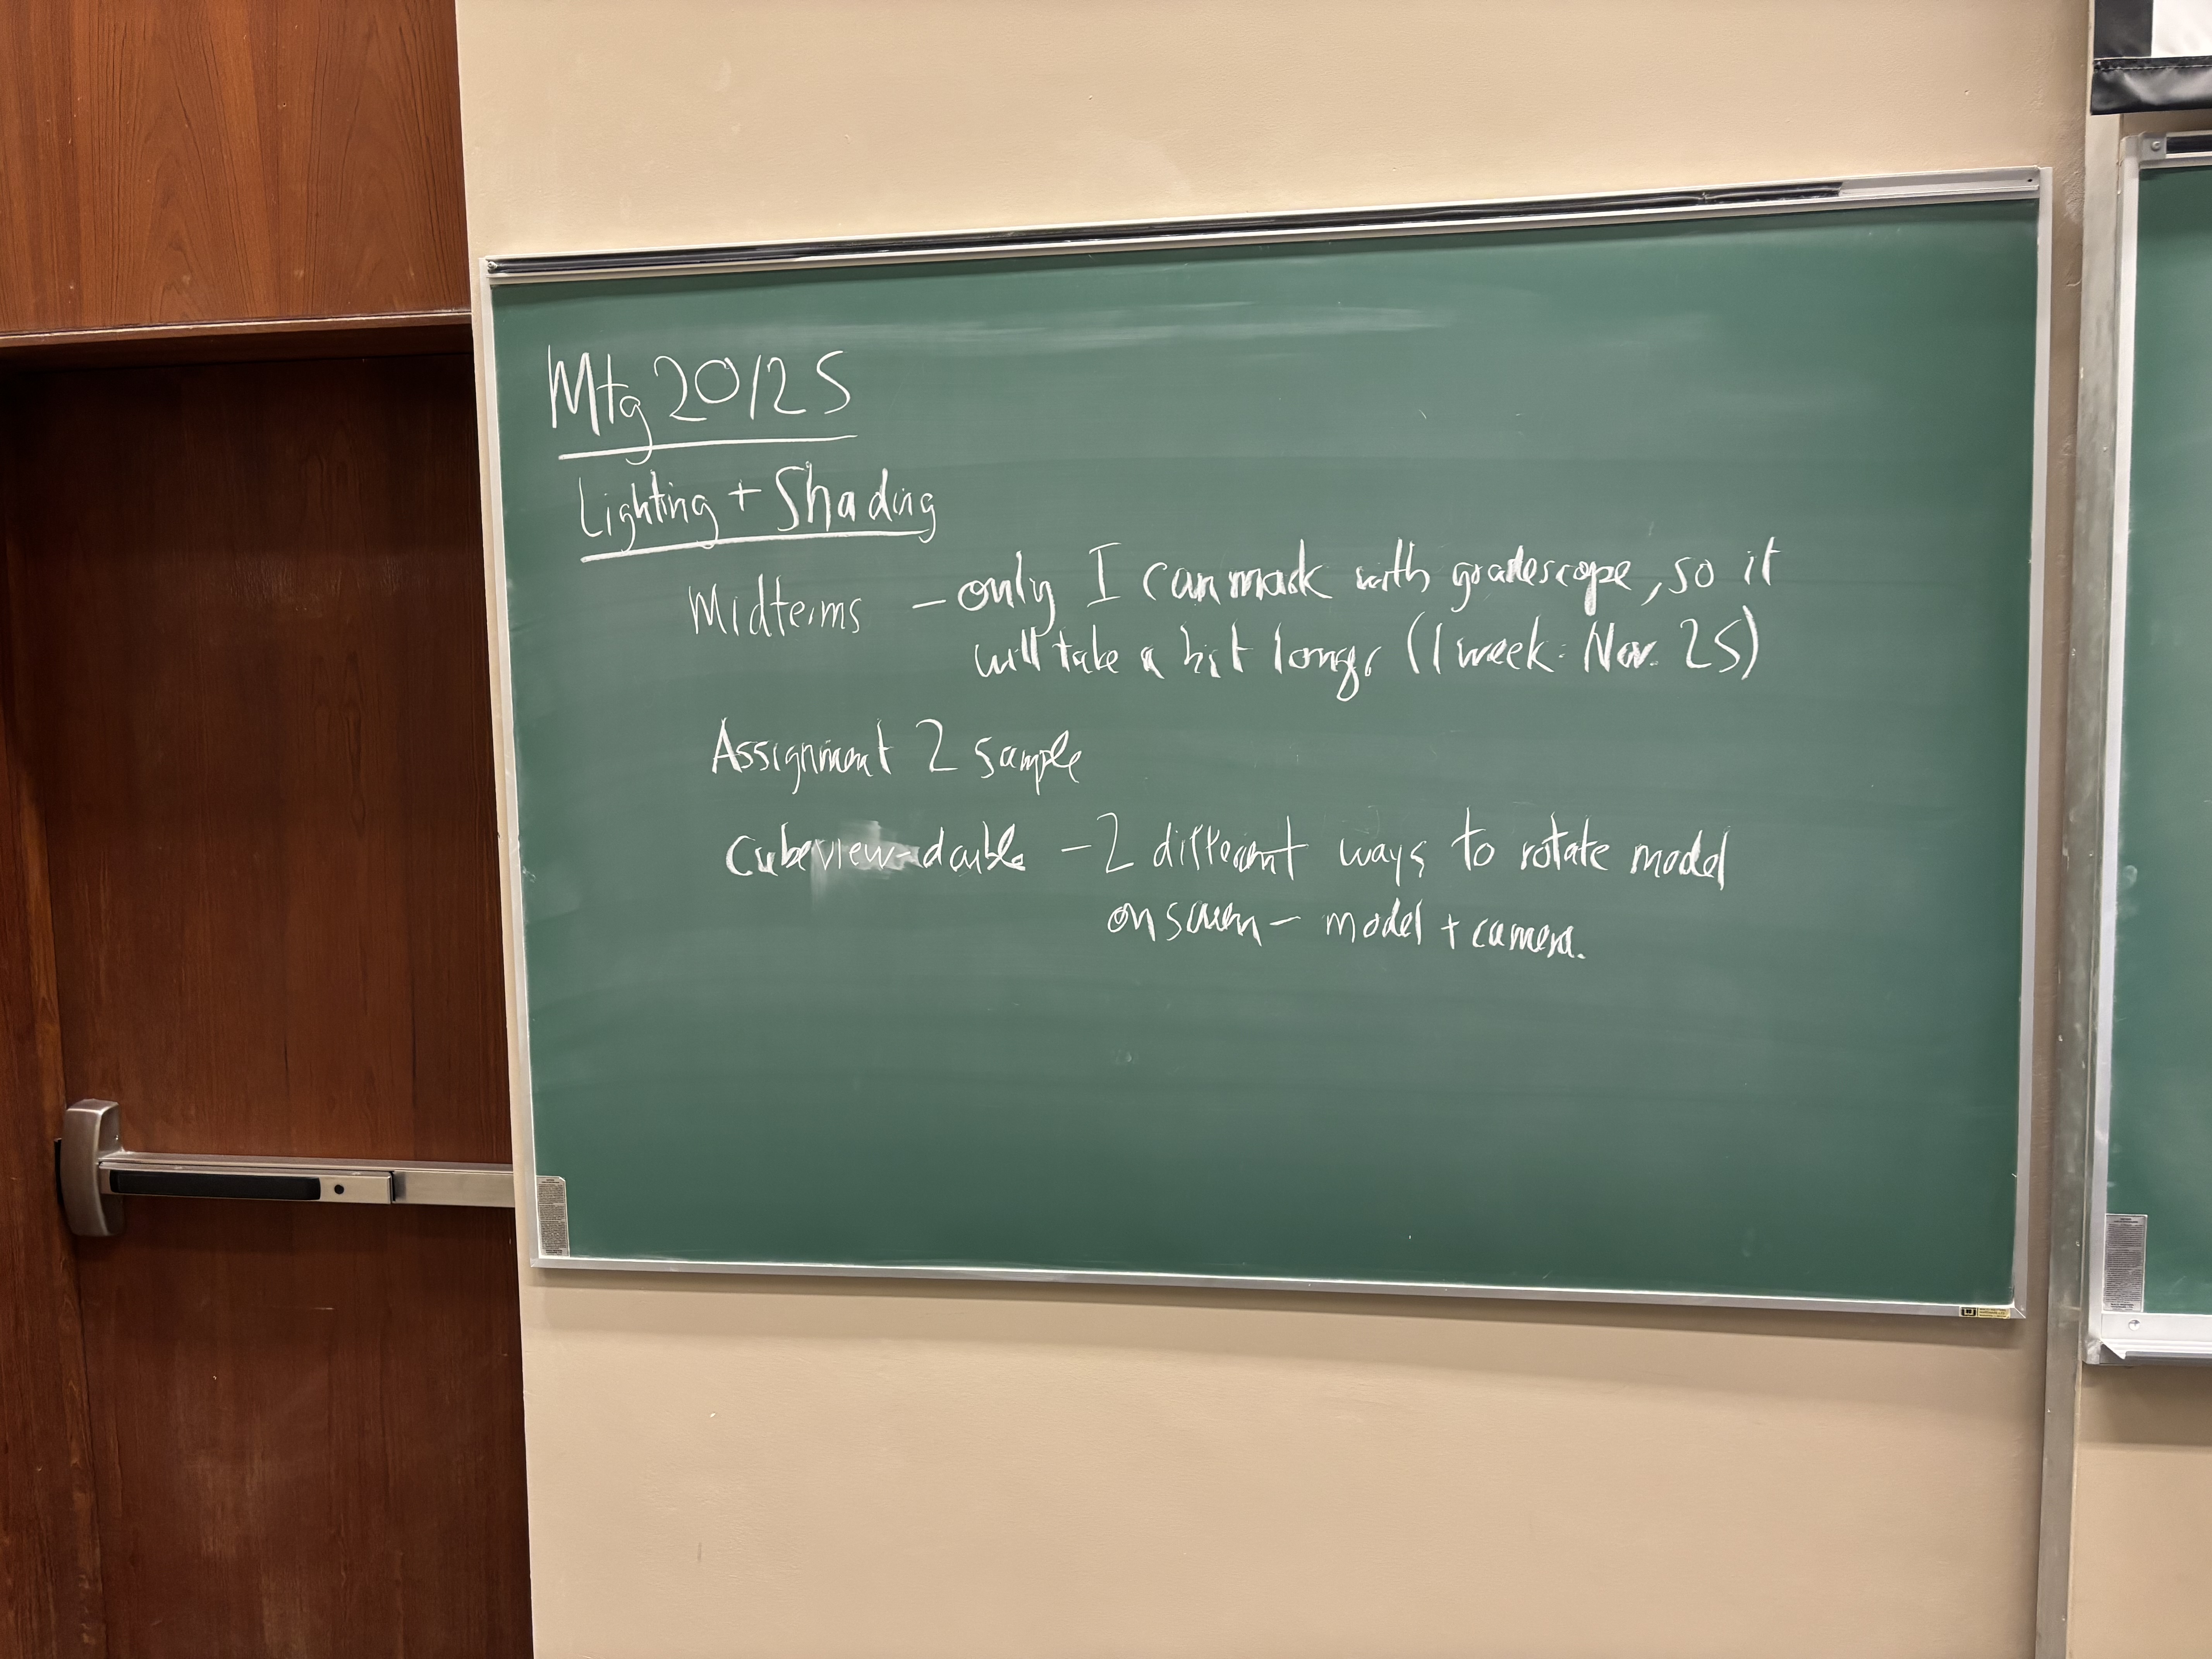 Mtg 20/25
Lighting + Shading
Midterms – only I can mark with gradescope, so it
will take a bit longer (1 week: Nov. 25)
Assignment 2 sample
Cubeview-double – 2 different ways to rotate model
on screen – model + camera.